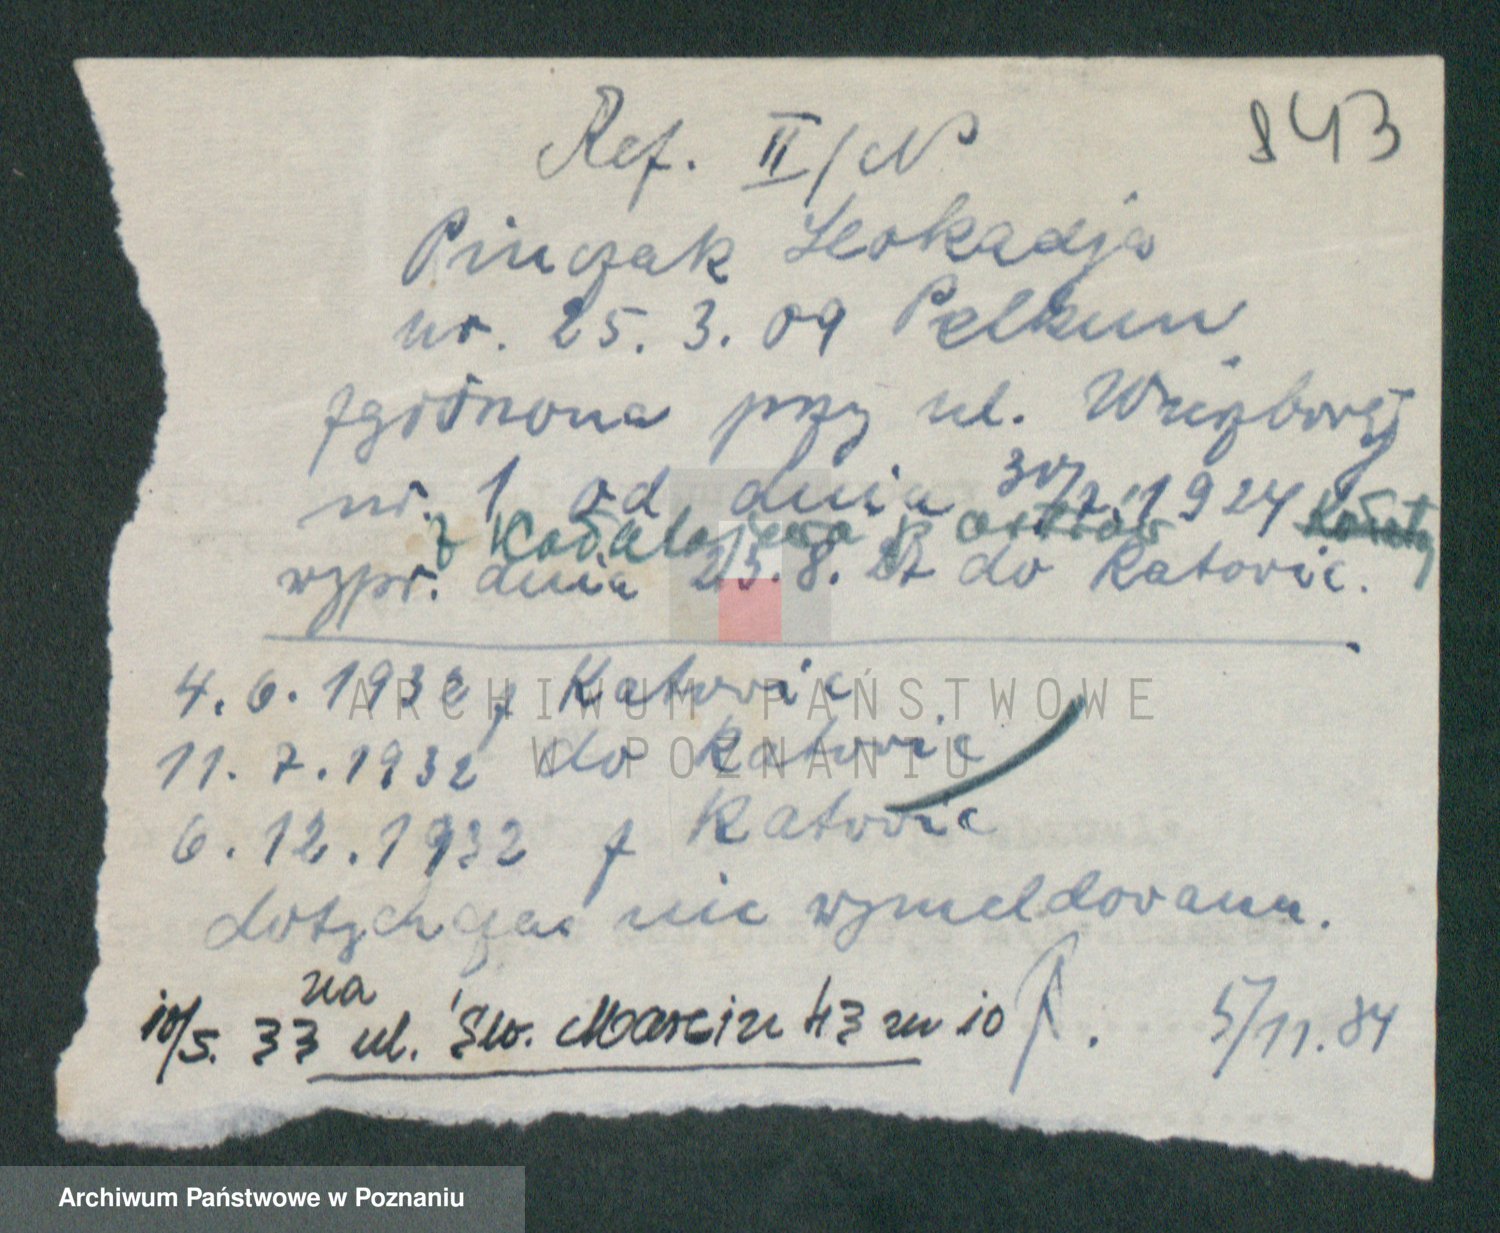 843
Ref. II/N
Pinczak Leokadja
ur. 25.3.09 Pelkum
zgłoszona przy ul. Wierzbowej
nr. 1 od dnia 30/7.1924
z Kołatajewa p Ostrów
wypr. dnia 25.8.27 do Katowic.
4.6.1932 z Katowic
11.7.1932 do Katowic
6.12.1932 z Katowic
dotychczas nie wymeldowana.
10/5.33 na ul. Św. Marcin 43 m 10
5/11.34
ARCHIWUM PAŃSTWOWE
W POZNANIU
Archiwum Państwowe w Poznaniu